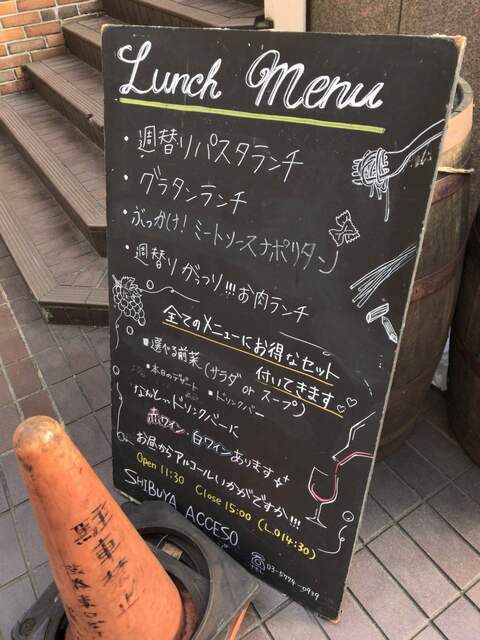 Lunch Menu
・週替りパスタランチ
・グラタンランチ
・ぶっかけ!ミートソースナポリタン
・週替りがっつり!!!お肉ランチ
全てのメニューにお得なセット
付いてきます♡♡
■選べる前菜(サラダ or スープ)
■本日のデザート ■ドリンクバー
なんと〜ドリンクバーに
赤ワイン、白ワインあります
お昼からアルコールいかがですか!!!
Open 11:30 Close 15:00 (L.O 14:30)
SHIBUYA ACCESO
☎03-5974-0939
駐車禁止